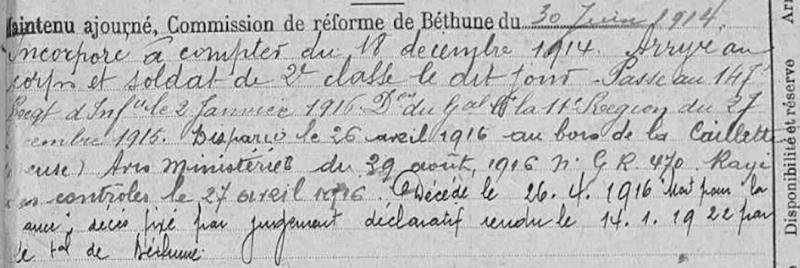 Maintenu ajourné, Commission de réforme de Béthune du 30 Juin 1914.
Incorporé à compter du 18 décembre 1914. Arrivé au
corps et soldat de 2e classe le dit jour. Passé au 147e
Regt d'Infie le 2 Janvier 1916. Don du Gal Ct la 11e Region du 27
cembre 1915. Disparu le 26 avril 1916 au bois de la Caillette
euse) Avis Ministériel du 29 août 1916 N: G R. 470. Rayé
des contrôles le 27 avril 1916. Décédé le 26. 4. 1916 Mort pour la
ance; décès fixé par jugement déclaratif rendu le 14. 1. 1922 par
le tal de Béthune.
Disponibilité et réserve